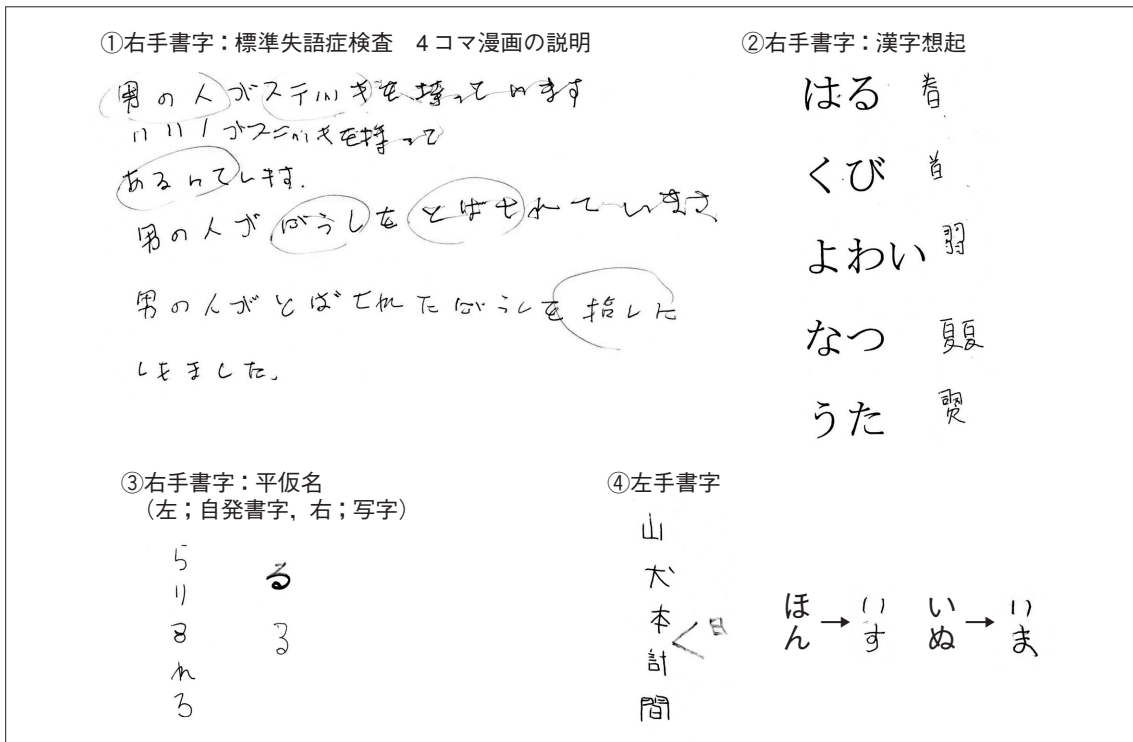 ①右手書字：標準失語症検査　4コマ漫画の説明
男の人がステッキを持っています
がステッキを持って
あるいてします.
男の人がぼうしをとばせれていまさ
男の人がとばせれたぼうしを拾した
しをました.
②右手書字：漢字想起
はる
くび　首
よわい
なつ
うた
③右手書字：平仮名
（左；自発書字，右；写字）
ら
り
れ
ろ
る
る
④左手書字
山
犬
本
計
間
日
ほん→いす
いぬ→いま